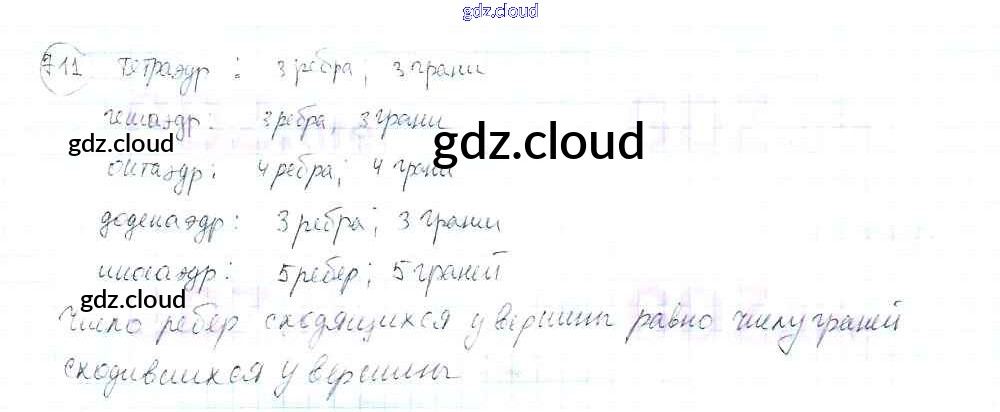 gdz.cloud
711 тетраэдр : 3 ребра; 3 грани
гексаэдр. 3 ребра, 3 грани
gdz.cloud gdz.cloud
октаэдр: 4 ребра; 4 грани
додекаэдр: 3 ребра; 3 грани
икосаэдр: 5 ребер; 5 граней
gdz.cloud
Число ребер сходящихся у вершины равно числу граней
сходившихся у вершины